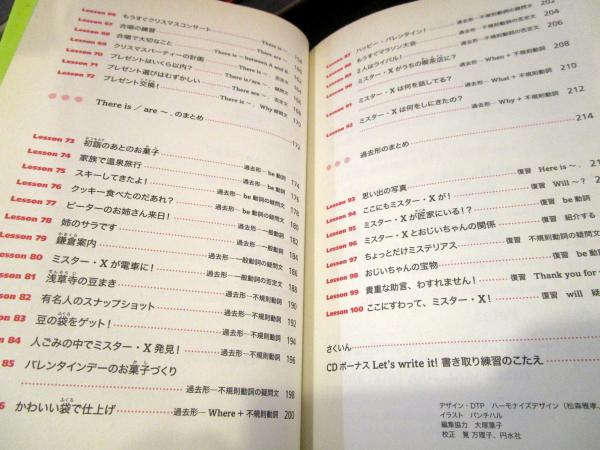 Lesson 66 もうすぐクリスマスコンサート There is ~.
合唱の練習 There are ~.
合唱で大切なこと There is ~ between A and B.
Lesson 69 クリスマスパーティーの計画
Lesson 70 プレゼントはいくら以内? There is/are ~. 否定文
Lesson 71 プレゼント選びはむずかしい There is ~. Why 疑問文
Lesson 72 プレゼント交換! 170
There is / are ~ . のまとめ 172
Lesson 73 初詣のあとのお菓子 過去形─ be 動詞 174
Lesson 74 家族で温泉旅行 過去形─ be 動詞 176
Lesson 75 スキーしてきたよ! 過去形─ be 動詞の疑問文 178
Lesson 76 クッキー食べたのだあれ? 過去形─一般動詞 180
Lesson 77 ピーターのお姉さん来日! 過去形─一般動詞 182
Lesson 78 姉のサラです 過去形─一般動詞 184
Lesson 79 鎌倉案内 過去形─一般動詞の疑問文 186
Lesson 80 ミスター・Xが電車に! 過去形─一般動詞の否定文 188
Lesson 81 浅草寺の豆まき 過去形─不規則動詞 190
Lesson 82 有名人のスナップショット 過去形─不規則動詞 192
Lesson 83 豆の袋をゲット! 過去形─不規則動詞 194
84 人ごみの中でミスター・X発見! 過去形─不規則動詞 196
85 バレンタインデーのお菓子づくり 過去形─不規則動詞の疑問文 198
かわいい袋で仕上げ 過去形─ Where + 不規則動詞 200
Lesson 87 ハッピー・バレンタイン! 過去形─不規則動詞の疑問文 202
もうすぐマラソン大会 過去形─不規則動詞の否定文 204
2人はライバル! 206
Lesson 90 ミスター・Xがうちの喫茶店に? 過去形─ When + 不規則動詞 208
Lesson 91 ミスター・Xは何を話してる? 過去形─ What + 不規則動詞 210
Lesson 92 ミスター・Xは何をしにきたの? 過去形─ Why + 不規則動詞 212
過去形のまとめ 214
Lesson 93 思い出の写真 復習 Here is ~.
Lesson 94 ここにもミスター・Xが! 復習 Will ~?
Lesson 95 ミスター・Xが匠家にいる!? 復習 be 動詞
Lesson 96 ミスター・Xとおじいちゃんの関係 復習 紹介する
Lesson 97 ちょっとだけミステリアス 復習 不規則動詞の疑問文
Lesson 98 おじいちゃんの宝物 復習 be 動詞
Lesson 99 貴重な助言、わすれません! 復習 Thank you for
Lesson 100 ここにすわって、ミスター・X! 復習 will
さくいん
CD ボーナス Let's write it! 書き取り練習のこたえ
デザイン・DTP ハーモナイズデザイン (松森雅孝、
イラスト バンチハル
編集協力 大塚葉子
校正 筧 万理子、円水社